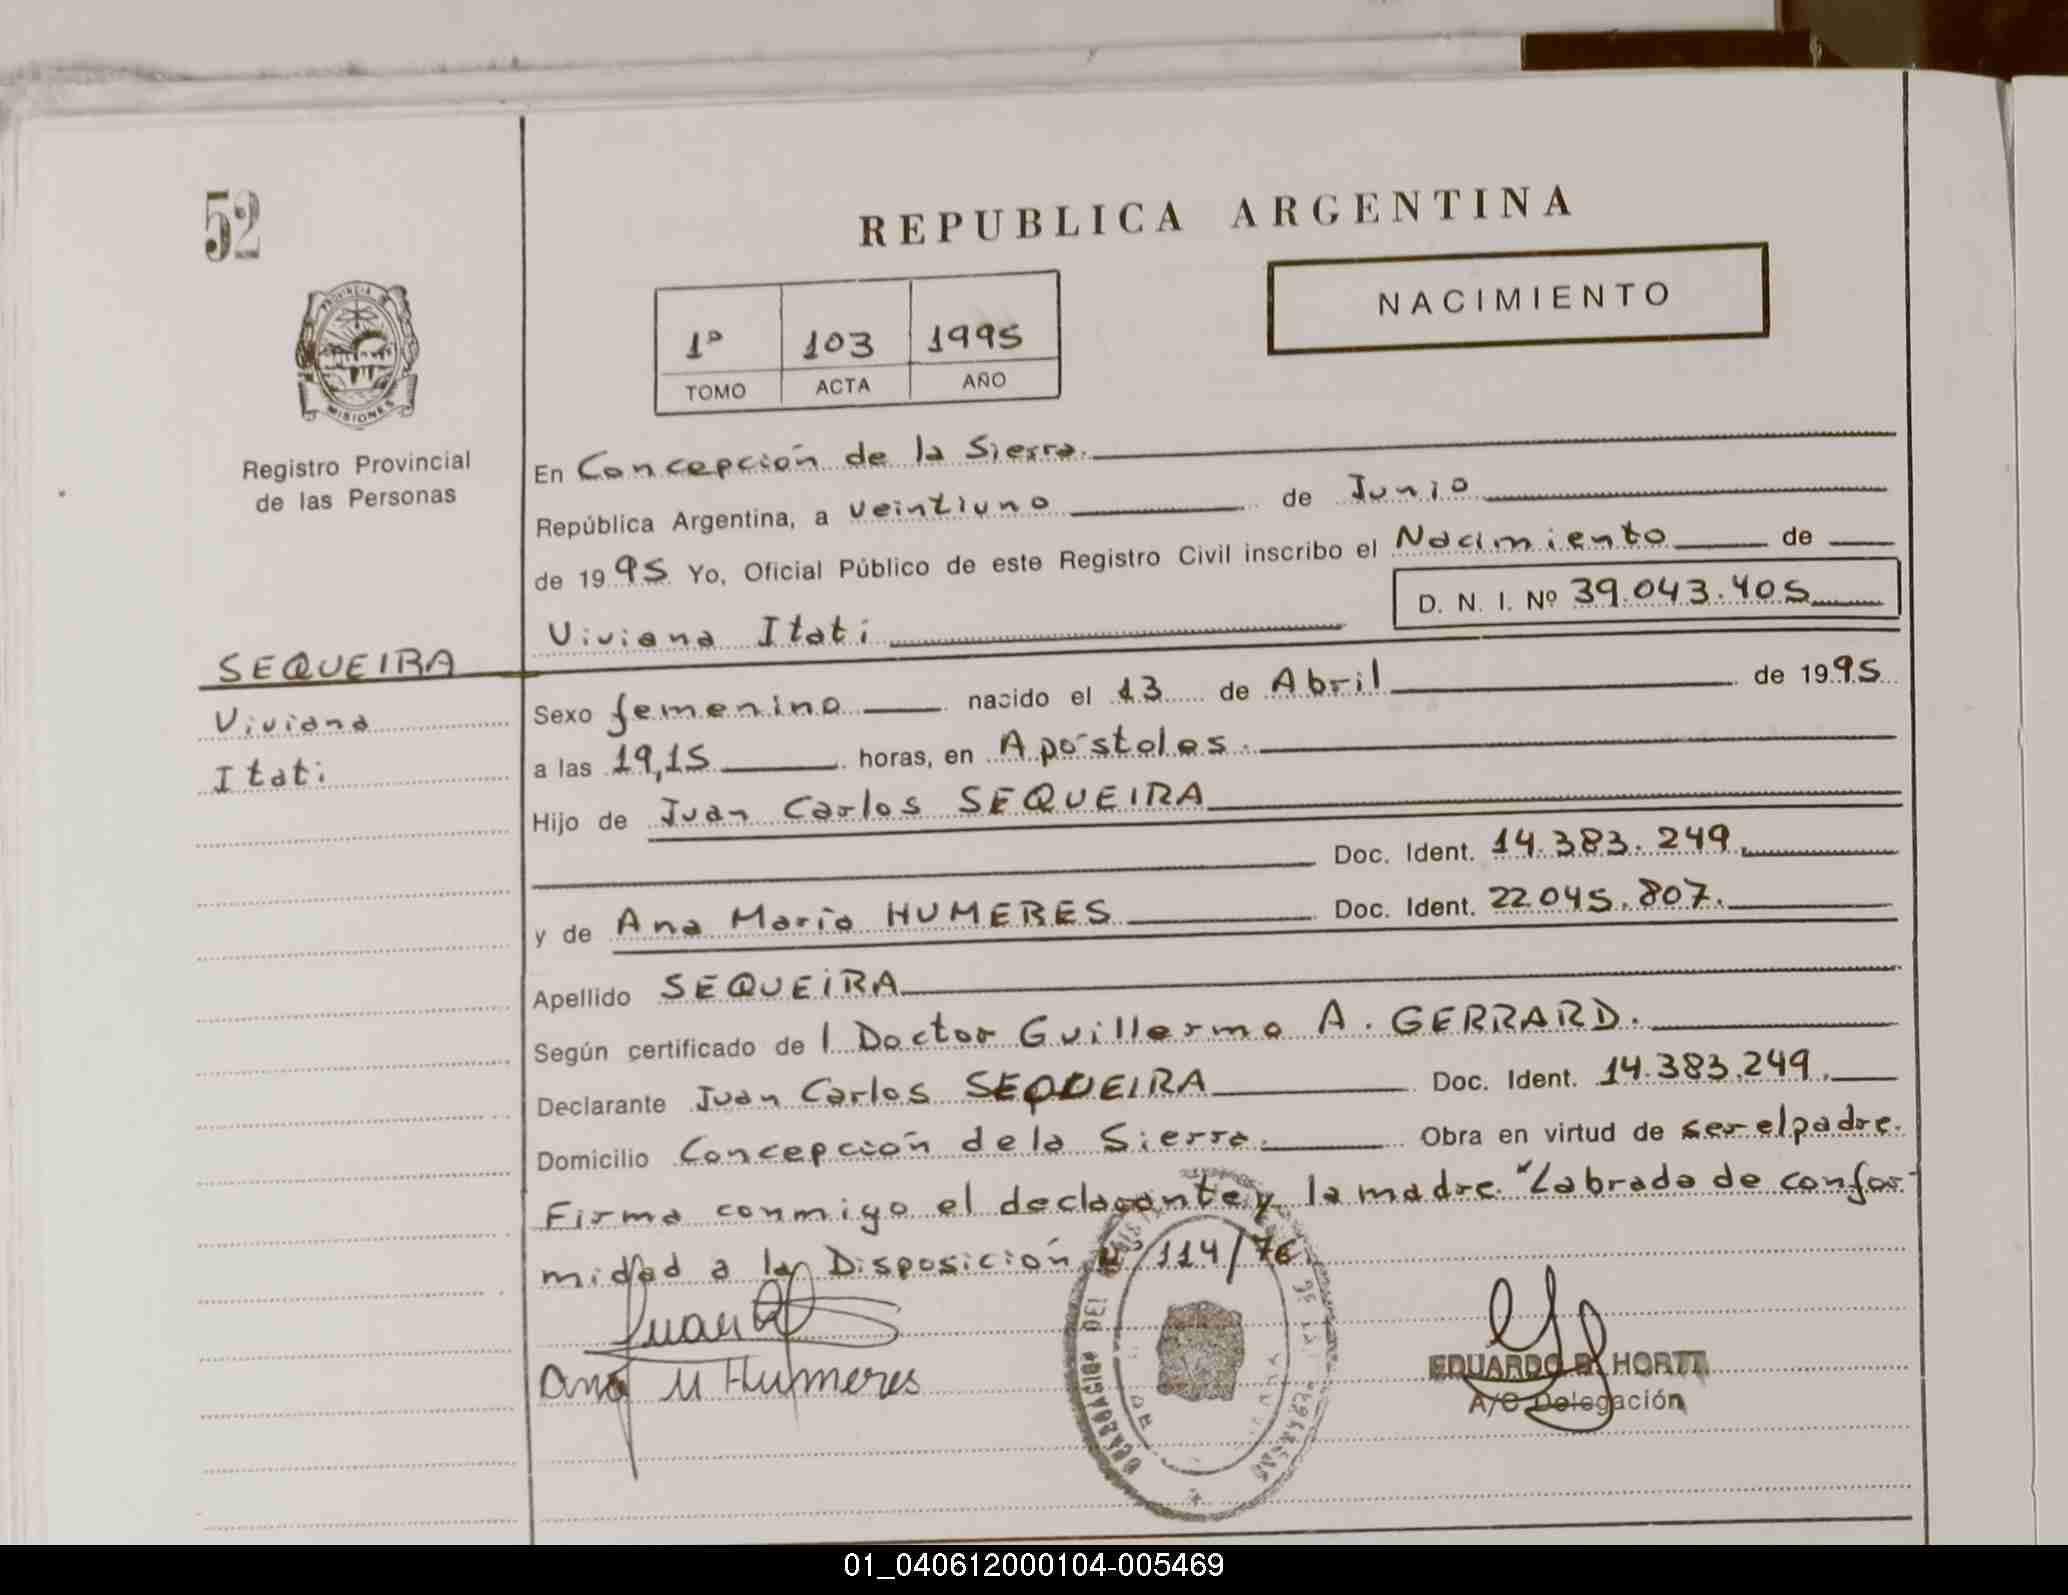 52
REPUBLICA ARGENTINA
NACIMIENTO
1º 103 1995
TOMO ACTA AÑO
PROVINCIA DE
MISIONES
Registro Provincial
de las Personas
En Concepción de la Sierra.
República Argentina, a veintiuno de Junio
de 1995 Yo, Oficial Público de este Registro Civil inscribo el Nacimiento de
D. N. I. Nº 39.043.405
Viviana Itati
SEQUEIRA
Viviana
Itati
Sexo femenino nacido el 13 de Abril de 1995
a las 19,15 horas, en Apóstoles.
Hijo de Juan Carlos SEQUEIRA
Doc. Ident. 14.383.249.
y de Ana María HUMERES Doc. Ident. 22.045.807.
Apellido SEQUEIRA
Según certificado de l Doctor Guillermo A. GERRARD.
Declarante Juan Carlos SEQUEIRA Doc. Ident. 14.383.249.
Domicilio Concepción de la Sierra. Obra en virtud de ser el padre.
Firma conmigo el declarante y la madre. "Labrada de confor-
midad a la Disposición Nº 114/76.
Juan
Ana M Humeres
EDUARDO R. HORTT
A/C Delegación
01_040612000104-005469